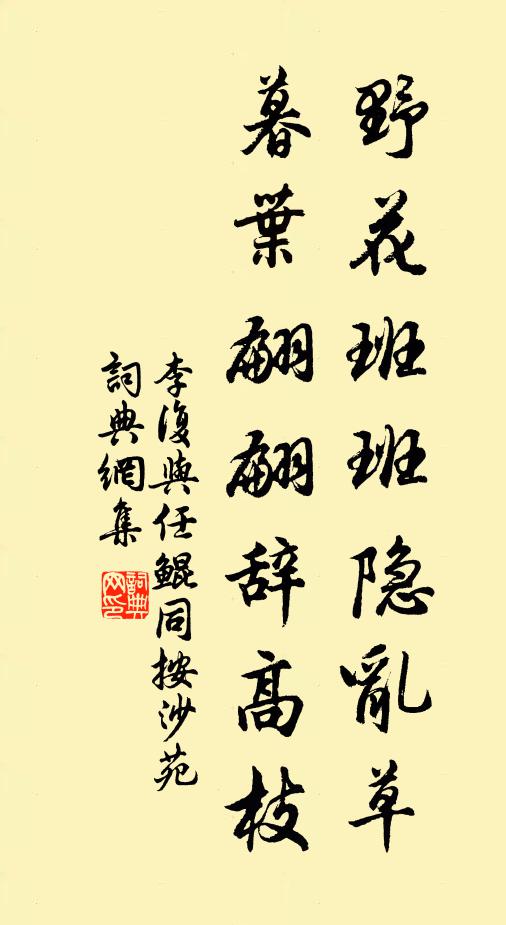 野花班班隐亂草
暮葉翩翩辞高枝
李復與任鯤同按沙苑
詞典網集
詞典网印